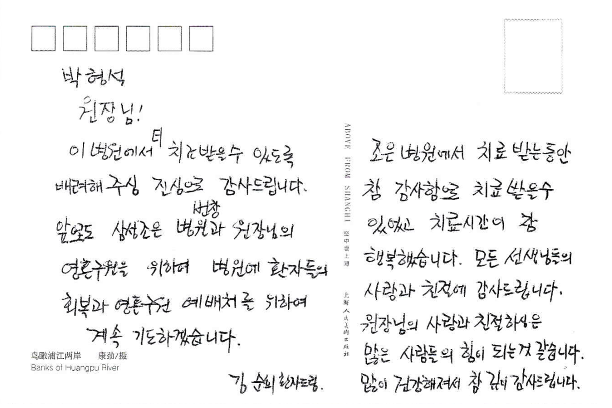 박형석
원장님!
이 병원에서 더 치료받을수 있도록
배려해 주심 진심으로 감사드립니다.
앞으로도 삼성조은 병원과 번창 원장님의
영혼구원을 위하여 병원에 환자들의
회복과 영혼구원 예배처를 위하여
계속 기도하겠습니다.
김순희 환자드림.
조은병원에서 치료받는동안
참 감사함으로 치료받을수
있었고 치료시간이 참
행복했습니다. 모든 선생님들의
사랑과 친절에 감사드립니다.
원장님의 사랑과 친절하심은
많은 사람들의 힘이 되는것 같습니다.
많이 건강해져서 참 깊이 감사드립니다.
ABOVE FROM SHANGHI 空中看上海
上海人民美术出版社
鸟瞰浦江两岸
Banks of Huangpu River